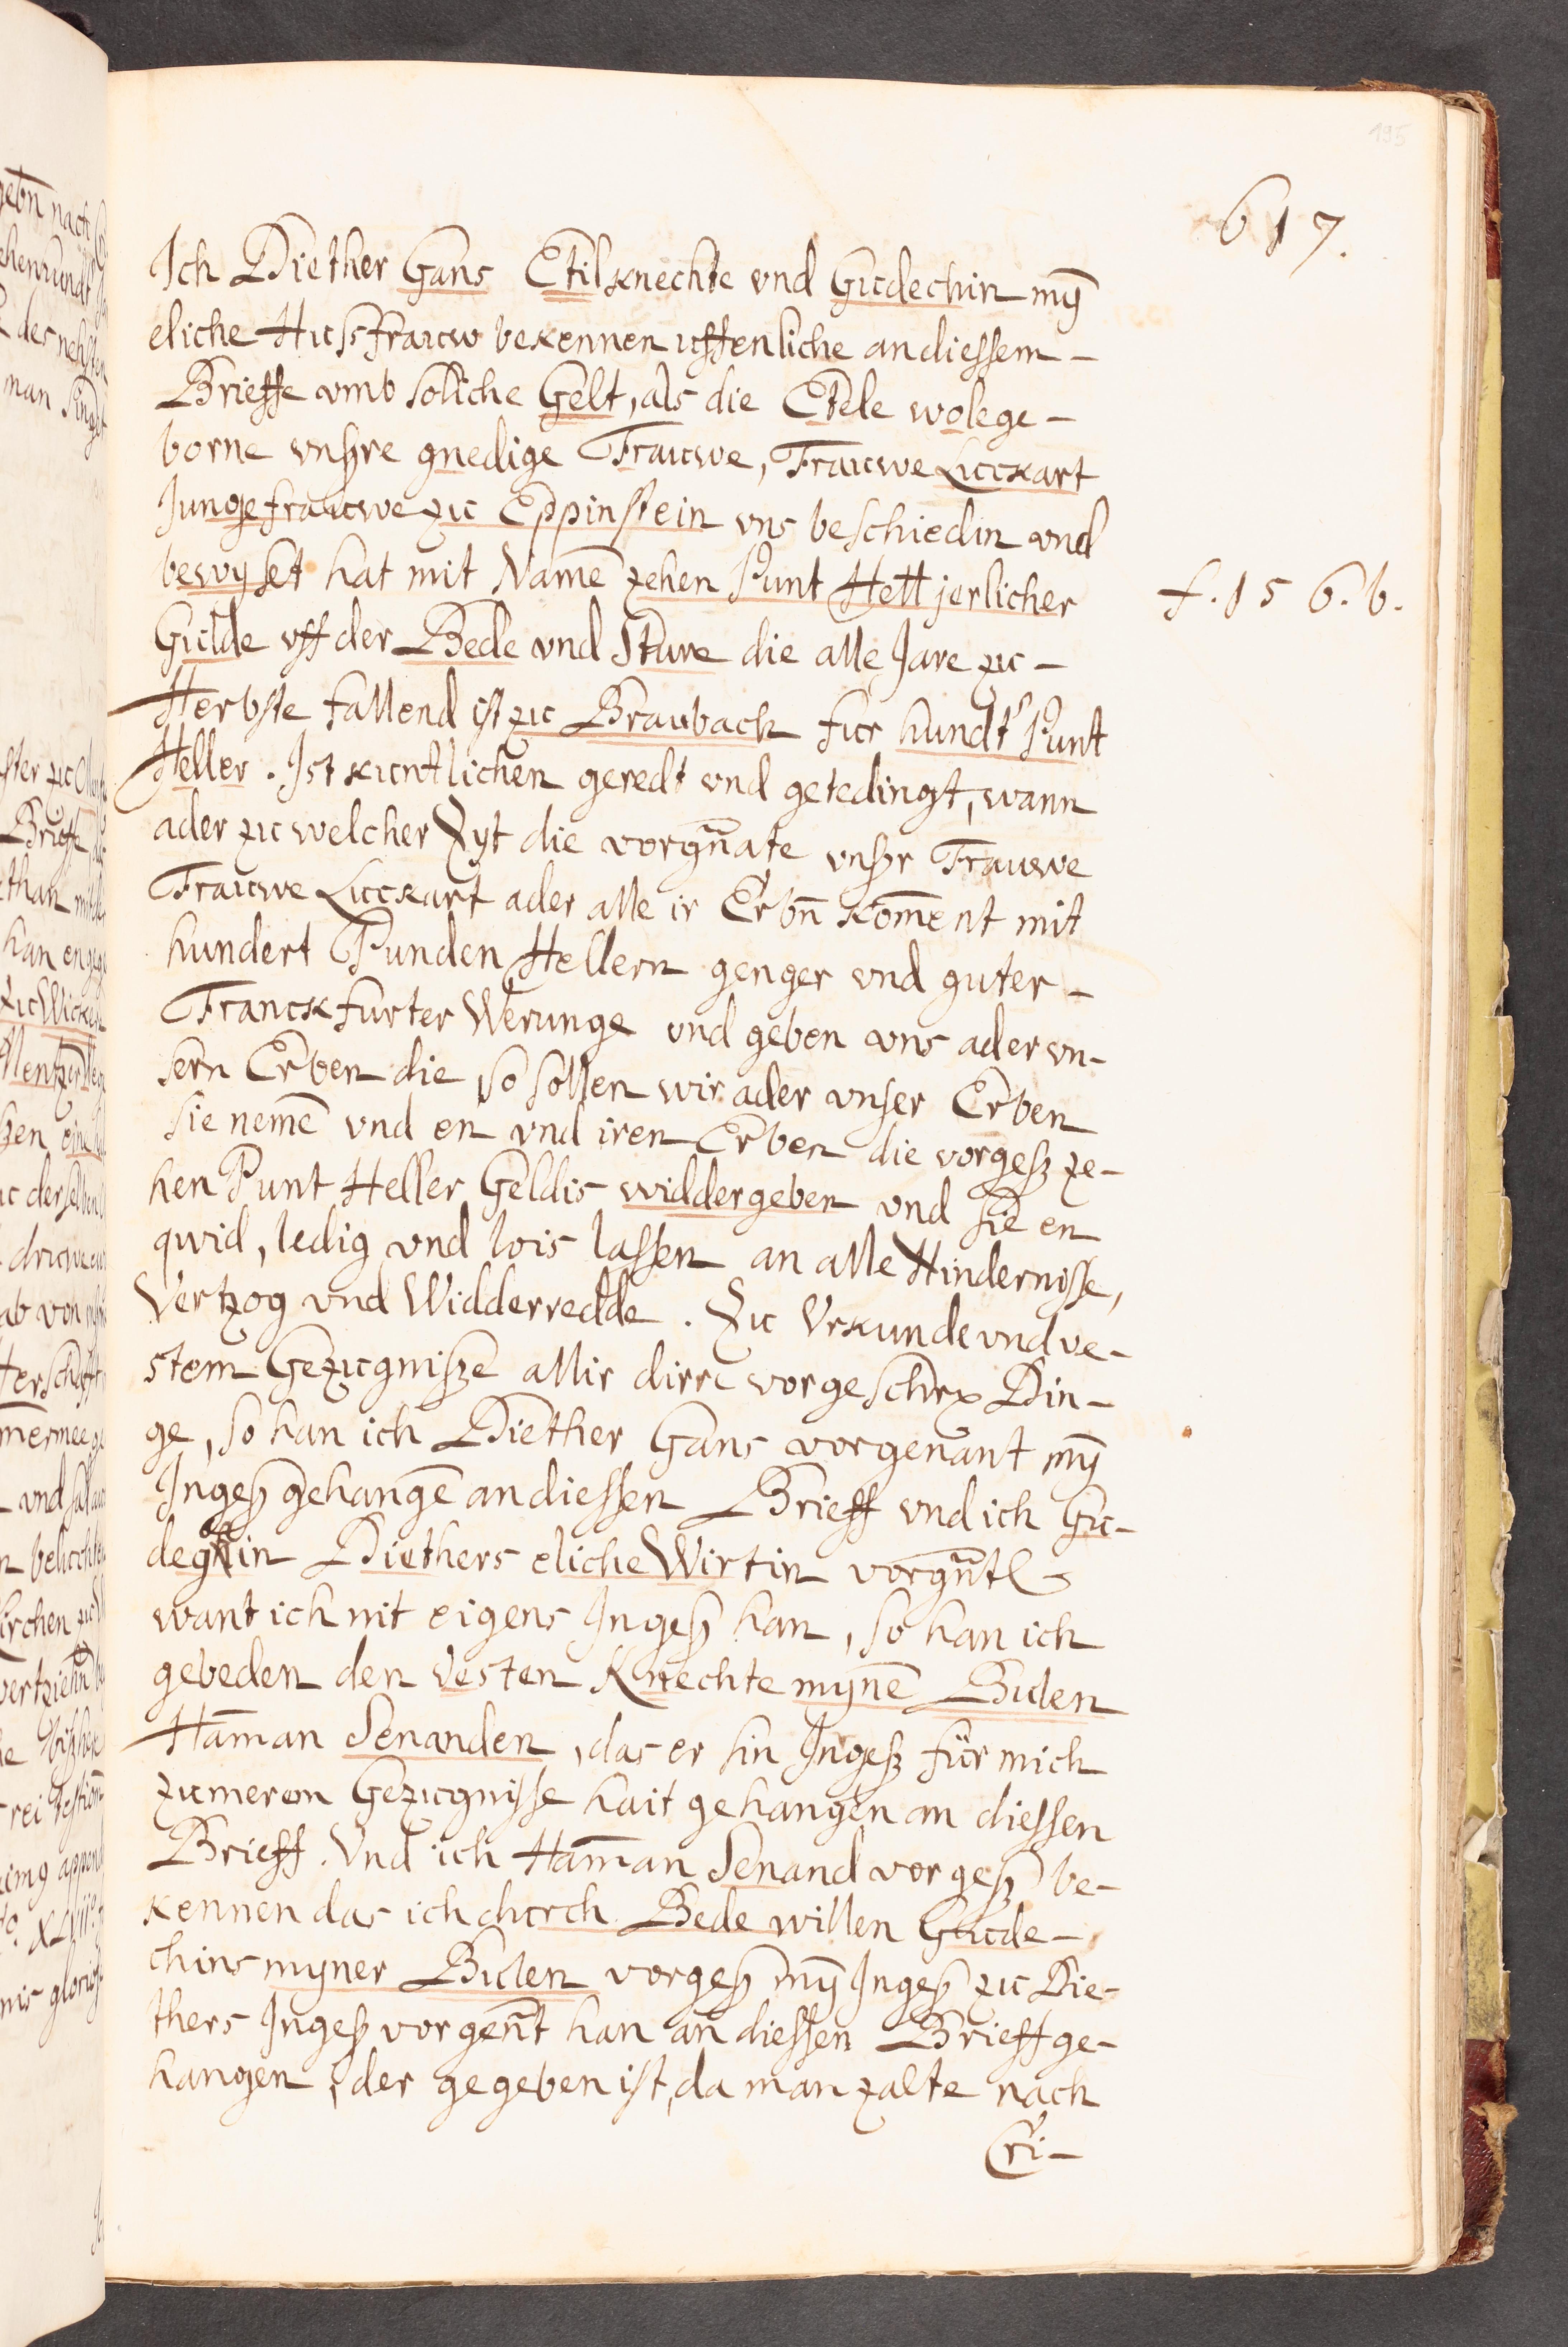 195
617.
Ich Diether Gans Etilknechte vnd Gudechin mỹ
eliche Hussfrauw bekennen uffenliche an diessem -
Brieffe vmb soliche Gelt, als die Etele wolege-
borne vnsre gnedige Frauwe, Frauwe Luckart
Jungefrauwe zu Eppinstein vns beschiedin vnd
bewyset hat mit Namē zehen Punt Hell jerlicher
f. 156. b.
Gulde vff der Bede vnd Sture die alle Jare zu -
Herbste fallend ist zu Braubach fur hundt Punt
Heller. Ist kuntlichen geredt vnd getedingt, wann
ader zu welcher Zyt die vorgñate vnsr Frauwe
Frauwe Luckart ader alle ir Erbñ koment mit
hundert Punden Hellern genger vnd guter -
Franckfurter Werunge vnd geben vns ader vn-
sern Erben die so sollen wir ader vnser Erben
sie nemē vnd en vnd iren Erben die vorgesz ze-
hen Punt Heller Geldis widdergeben vnd sie en
qwid, ledig vnd lois lassen an alle Hindernisse,
Vertzog vnd Widderredde. Zu Vrkunde vnd ve-
stem Gezugnisze allir dirre vorgeschrx Din-
ge, so han ich Diether Gans vorgenant mỹ
Ingesz gehangē an diessen Brieff vnd ich Gu-
degin Diethers eliche Wirtin vorgñt
want ich nit eigens Ingesz han, so han ich
gebeden den Vesten Knechte mynē Bulen
Hāman Senanden, das er sin Ingesz für mich
zu meron Gezugnisse hait gehangen an diessen
Brieff. Vnd ich Hāman Senand vorgesz be-
kennen das ich durch Bede willen Gude-
chins myner Bulen vorgesz mỹ Ingesz zu Die-
thers Ingesz vorgeñt han an diessen Brieff ge-
hangen, der gegeben ist, da man zalte nach
Cri-